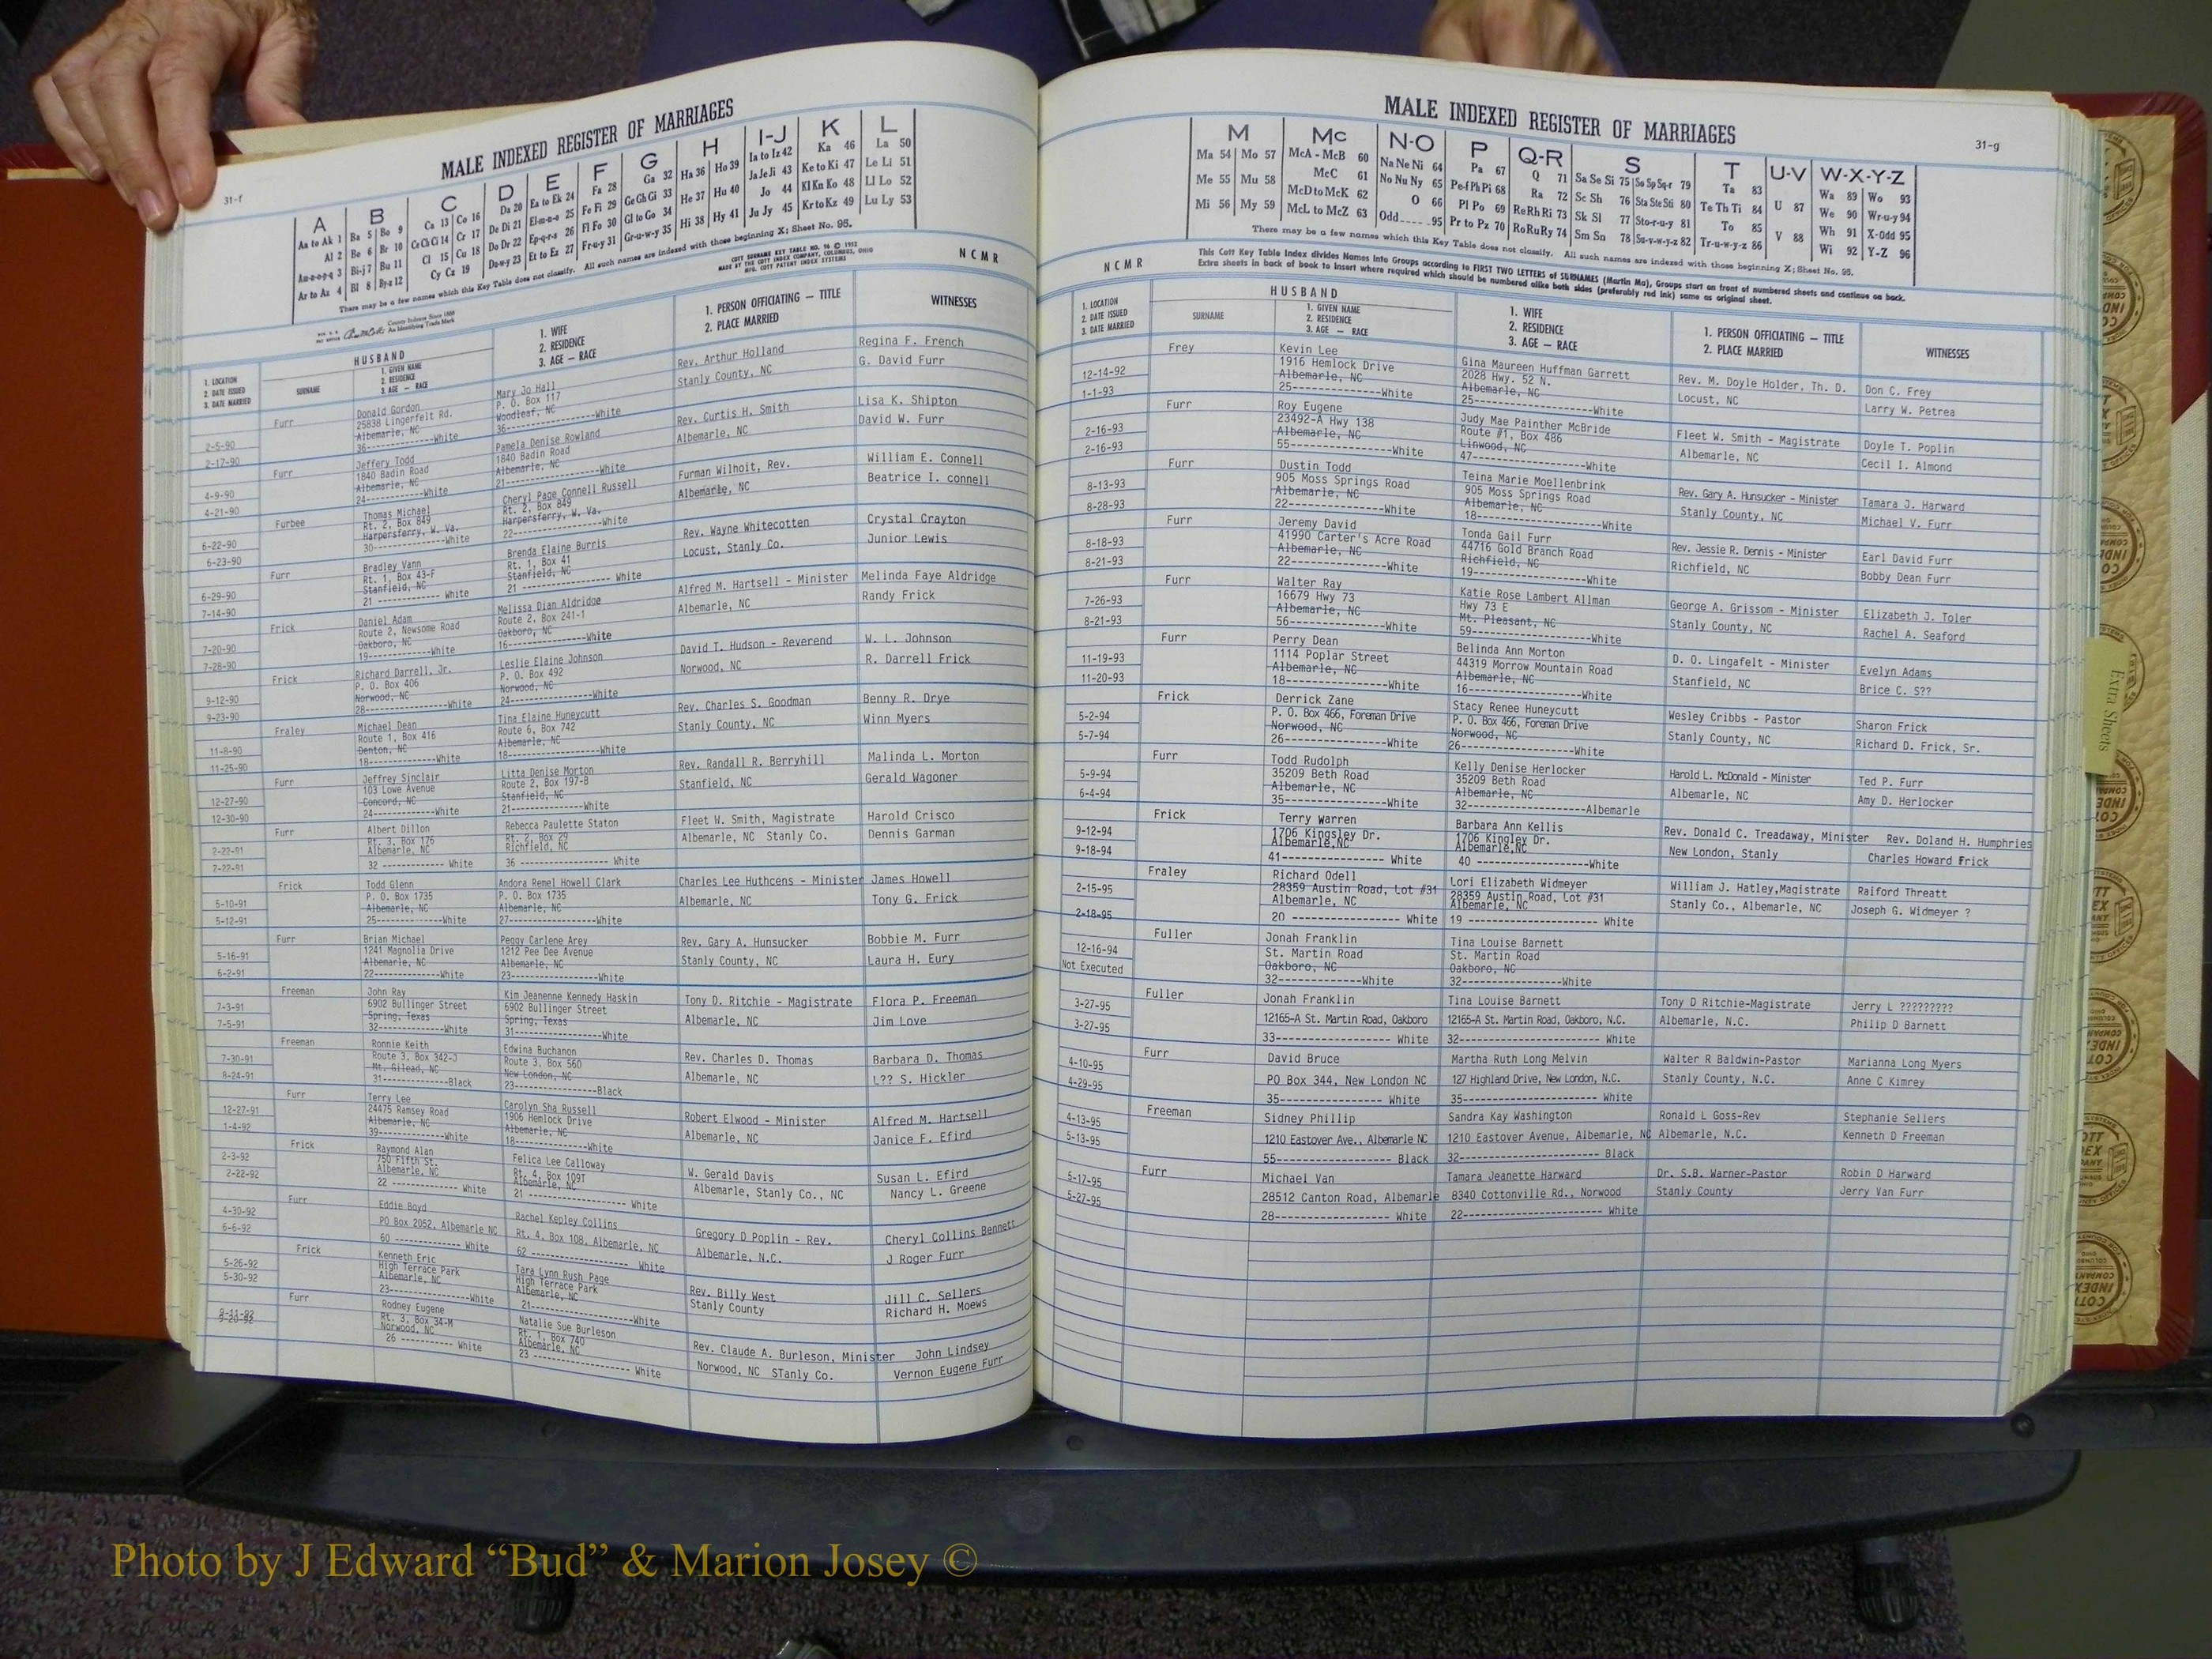 MALE INDEXED REGISTER OF MARRIAGES
31-f
A B C D E F G H I-J K L
Aa to Ak 1 Ba 5 Bo 9 Ca 13 Co 16 Da 20 Ea to Ek 24 Fa 28 Ga 32 Ha 36 Ho 39 Ia to Iz 42 Ka 46 La 50
Al 2 Be 6 Br 10 Ce Ch Ci 14 Cr 17 De Di 21 El-m-n-o 25 Fe Fi 29 Ge Gh Gi 33 He 37 Hu 40 Ja Je Ji 43 Ke to Ki 47 Le Li 51
Am-n-o-p-q 3 Bi-j 7 Bu 11 Cl 15 Cu 18 Do Dr 22 Ep-q-r-s 26 Fl Fo 30 Gl to Go 34 Hi 38 Hy 41 Jo 44 Kl Kn Ko 48 Ll Lo 52
Ar to Az 4 Bl 8 By-z 12 Cy Cz 19 Do-w-y 23 Et to Ez 27 Fr-u-y 31 Gr-u-w-y 35 Ju Jy 45 Kr to Kz 49 Lu Ly 53
There may be a few names which this Key Table does not classify. All such names are indexed with those beginning X; Sheet No. 95.
COTT SURNAME KEY TABLE NO. 96 © 1952
MADE BY THE COTT INDEX COMPANY, COLUMBUS, OHIO
MFG. COTT PATENT INDEX SYSTEMS
County Indexes Since 1888
An Identifying Trade Mark
NCMR
1. LOCATION
2. DATE ISSUED
3. DATE MARRIED
HUSBAND
SURNAME
1. GIVEN NAME
2. RESIDENCE
3. AGE — RACE
1. WIFE
2. RESIDENCE
3. AGE — RACE
1. PERSON OFFICIATING — TITLE
2. PLACE MARRIED
WITNESSES
Furr Donald Gordon Mary Jo Hall Rev. Arthur Holland Regina F. French
25838 Lingerfelt Rd. P. O. Box 117 Stanly County, NC G. David Furr
2-5-90 Albemarle, NC Woodleaf, NC
2-17-90 36------------White 36------------White
Furr Jeffery Todd Pamela Denise Rowland Rev. Curtis H. Smith Lisa K. Shipton
1840 Badin Road 1840 Badin Road Albemarle, NC David W. Furr
4-9-90 Albemarle, NC Albemarle, NC
4-21-90 24------------White 21------------White
Furbee Thomas Michael Cheryl Page Connell Russell Furman Wilhoit, Rev. William E. Connell
Rt. 2, Box 849 Rt. 2, Box 849 Albemarle, NC Beatrice I. connell
6-22-90 Harpersferry, W. Va. Harpersferry, W. Va.
6-23-90 30------------White 22------------White
Furr Bradley Vann Brenda Elaine Burris Rev. Wayne Whitecotten Crystal Crayton
Rt. 1, Box 43-F Rt. 1, Box 41 Locust, Stanly Co. Junior Lewis
6-29-90 Stanfield, NC Stanfield, NC
7-14-90 21 ------------ White 21 ------------ White
Frick Daniel Adam Melissa Dian Aldridge Alfred M. Hartsell - Minister Melinda Faye Aldridge
Route 2, Newsome Road Route 2, Box 241-1 Albemarle, NC Randy Frick
7-20-90 Oakboro, NC Oakboro, NC
7-28-90 19------------White 16------------White
Frick Richard Darrell, Jr. Leslie Elaine Johnson David T. Hudson - Reverend W. L. Johnson
P. O. Box 406 P. O. Box 492 Norwood, NC R. Darrell Frick
9-12-90 Norwood, NC Norwood, NC
9-23-90 28------------White 24------------White
Fraley Michael Dean Tina Elaine Huneycutt Rev. Charles S. Goodman Benny R. Drye
Route 1, Box 416 Route 6, Box 742 Stanly County, NC Winn Myers
11-8-90 Denton, NC Albemarle, NC
11-25-90 18------------White 18------------White
Furr Jeffrey Sinclair Litta Denise Morton Rev. Randall R. Berryhill Malinda L. Morton
103 Lowe Avenue Route 2, Box 197-B Stanfield, NC Gerald Wagoner
12-27-90 Concord, NC Stanfield, NC
12-30-90 24------------White 21------------White
Furr Albert Dillon Rebecca Paulette Staton Fleet W. Smith, Magistrate Harold Crisco
Rt. 3, Box 176 Rt. 2, Box 29 Albemarle, NC Stanly Co. Dennis Garman
2-22-91 Albemarle, NC Richfield, NC
2-22-91 32 ------------ White 36 ------------ White
Frick Todd Glenn Andora Remel Howell Clark Charles Lee Huthcens - Minister James Howell
5-10-91 P. O. Box 1735 P. O. Box 1735 Albemarle, NC Tony G. Frick
Albemarle, NC Albemarle, NC
5-12-91 25------------White 27------------White
Furr Brian Michael Peggy Carlene Arey Rev. Gary A. Hunsucker Bobbie M. Furr
5-16-91 1241 Magnolia Drive 1212 Pee Dee Avenue Stanly County, NC Laura H. Eury
Albemarle, NC Albemarle, NC
6-2-91 22------------White 23------------White
Freeman John Ray Kim Jeanenne Kennedy Haskin Tony D. Ritchie - Magistrate Flora P. Freeman
7-3-91 6902 Bullinger Street 6902 Bullinger Street Albemarle, NC Jim Love
Spring, Texas Spring, Texas
7-5-91 32------------White 31------------White
Freeman Ronnie Keith Edwina Buchanon Rev. Charles D. Thomas Barbara D. Thomas
7-30-91 Route 3, Box 342-J Route 3, Box 560 Albemarle, NC L?? S. Hickler
Mt. Gilead, NC New London, NC
8-24-91 31------------Black 23------------Black
Furr Terry Lee Carolyn Sha Russell Robert Elwood - Minister Alfred M. Hartsell
12-27-91 24475 Ramsey Road 1906 Hemlock Drive Albemarle, NC Janice F. Efird
Albemarle, NC Albemarle, NC
1-4-92 39------------White 18------------White
Frick Raymond Alan Felica Lee Calloway W. Gerald Davis Susan L. Efird
2-3-92 750 Fifth St. Rt. 4, Box 109T Albemarle, Stanly Co., NC Nancy L. Greene
Albemarle, NC Albemarle, NC
2-22-92 22 ------------ White 21 ------------ White
Furr Eddie Boyd Rachel Kepley Collins Gregory D Poplin - Rev. Cheryl Collins Bennett
4-30-92 PO Box 2052, Albemarle NC Rt. 4, Box 108, Albemarle, NC Albemarle, N.C. J Roger Furr
6-6-92 60 ------------ White 62 ------------ White
Frick Kenneth Eric Tara Lynn Rush Page Rev. Billy West Jill C. Sellers
5-26-92 High Terrace Park High Terrace Park Stanly County Richard H. Moews
5-30-92 Albemarle, NC Albemarle, NC
23------------White 21------------White
Furr Rodney Eugene Natalie Sue Burleson Rev. Claude A. Burleson, Minister John Lindsey
9-11-92 Rt. 3, Box 34-M Rt. 1, Box 740 Norwood, NC STanly Co. Vernon Eugene Furr
9-20-92 Norwood, NC Albemarle, NC
26 ------------ White 23 ------------ White
MALE INDEXED REGISTER OF MARRIAGES
31-g
M Mc N-O P Q-R S T U-V W-X-Y-Z
Ma 54 Mo 57 McA - McB 60 Na Ne Ni 64 Pa 67 Q 71 Sa Se Si 75 So Sp Sq-r 79 Ta 83 U 87 Wa 89 Wo 93
Me 55 Mu 58 McC 61 No Nu Ny 65 Pe-f Ph Pi 68 Ra 72 Sc Sh 76 Sta Ste Sti 80 Te Th Ti 84 V 88 We 90 Wr-u-y 94
Mi 56 My 59 McD to McK 62 O 66 Pl Po 69 Re Rh Ri 73 Sk Sl 77 Sto-r-u-y 81 To 85 Wh 91 X-Odd 95
McL to McZ 63 Odd 95 Pr to Pz 70 Ro Ru Ry 74 Sm Sn 78 Su-v-w-y-z 82 Tr-u-w-y-z 86 Wi 92 Y-Z 96
There may be a few names which this Key Table does not classify. All such names are indexed with those beginning X; Sheet No. 95.
This Cott Key Table Index divides Names into Groups according to FIRST TWO LETTERS of SURNAMES (Martin Ma), Groups start on front of numbered sheets and continue on back.
Extra sheets in back of book to insert where required which should be numbered alike both sides (preferably red ink) same as original sheet.
NCMR
1. LOCATION
2. DATE ISSUED
3. DATE MARRIED
HUSBAND
SURNAME
1. GIVEN NAME
2. RESIDENCE
3. AGE — RACE
1. WIFE
2. RESIDENCE
3. AGE — RACE
1. PERSON OFFICIATING — TITLE
2. PLACE MARRIED
WITNESSES
Frey Kevin Lee Gina Maureen Huffman Garrett Rev. M. Doyle Holder, Th. D. Don C. Frey
12-14-92 1916 Hemlock Drive 2028 Hwy. 52 N. Locust, NC Larry W. Petrea
Albemarle, NC Albemarle, NC
1-1-93 25------------White 25------------White
Furr Roy Eugene Judy Mae Painther McBride Fleet W. Smith - Magistrate Doyle T. Poplin
2-16-93 23492-A Hwy 138 Route #1, Box 486 Albemarle, NC Cecil I. Almond
Albemarle, NC Linwood, NC
2-16-93 55------------White 47------------White
Furr Dustin Todd Teina Marie Moellenbrink Rev. Gary A. Hunsucker - Minister Tamara J. Harward
8-13-93 905 Moss Springs Road 905 Moss Springs Road Stanly County, NC Michael V. Furr
Albemarle, NC Albemarle, NC
8-28-93 22------------White 18------------White
Furr Jeremy David Tonda Gail Furr Rev. Jessie R. Dennis - Minister Earl David Furr
8-18-93 41990 Carter's Acre Road 44716 Gold Branch Road Richfield, NC Bobby Dean Furr
Albemarle, NC Richfield, NC
8-21-93 22------------White 19------------White
Furr Walter Ray Katie Rose Lambert Allman George A. Grissom - Minister Elizabeth J. Toler
7-26-93 16679 Hwy 73 Hwy 73 E Stanly County, NC Rachel A. Seaford
Albemarle, NC Mt. Pleasant, NC
8-21-93 56------------White 59------------White
Furr Perry Dean Belinda Ann Morton D. O. Lingafelt - Minister Evelyn Adams
11-19-93 1114 Poplar Street 44319 Morrow Mountain Road Stanfield, NC Brice C. S??
Albemarle, NC Albemarle, NC
11-20-93 18------------White 16------------White
Frick Derrick Zane Stacy Renee Huneycutt Wesley Cribbs - Pastor Sharon Frick
5-2-94 P. O. Box 466, Foreman Drive P. O. Box 466, Foreman Drive Stanly County, NC Richard D. Frick, Sr.
Norwood, NC Norwood, NC
5-7-94 26------------White 26------------White
Furr Todd Rudolph Kelly Denise Herlocker Harold L. McDonald - Minister Ted P. Furr
5-9-94 35209 Beth Road 35209 Beth Road Albemarle, NC Amy D. Herlocker
Albemarle, NC Albemarle, NC
6-4-94 35------------White 32------------Albemarle
Frick Terry Warren Barbara Ann Kellis Rev. Donald C. Treadaway, Minister Rev. Doland H. Humphries
9-12-94 1706 Kingsley Dr. 1706 Kingley Dr. New London, Stanly Charles Howard Frick
Albemarle,NC Albemarle,NC
9-18-94 41------------ White 40 ------------White
Fraley Richard Odell Lori Elizabeth Widmeyer William J. Hatley,Magistrate Raiford Threatt
2-15-95 28359 Austin Road, Lot #31 28359 Austin Road, Lot #31 Stanly Co., Albemarle, NC Joseph G. Widmeyer ?
Albemarle, NC Albemarle, NC
2-18-95 20 ------------ White 19 ------------ White
Fuller Jonah Franklin Tina Louise Barnett
12-16-94 St. Martin Road St. Martin Road
Not Executed Oakboro, NC Oakboro, NC
32------------White 32------------White
Fuller Jonah Franklin Tina Louise Barnett Tony D Ritchie-Magistrate Jerry L ?????????
3-27-95 12165-A St. Martin Road, Oakboro 12165-A St. Martin Road, Oakboro, N.C. Albemarle, N.C. Philip D Barnett
3-27-95 33------------ White 32------------ White
Furr David Bruce Martha Ruth Long Melvin Walter R Baldwin-Pastor Marianna Long Myers
4-10-95 PO Box 344, New London NC 127 Highland Drive, New London, N.C. Stanly County, N.C. Anne C Kimrey
4-29-95 35------------ White 35------------ White
Freeman Sidney Phillip Sandra Kay Washington Ronald L Goss-Rev Stephanie Sellers
4-13-95 1210 Eastover Ave., Albemarle NC 1210 Eastover Avenue, Albemarle, NC Albemarle, N.C. Kenneth D Freeman
5-13-95 55------------ Black 32------------ Black
Furr Michael Van Tamara Jeanette Harward Dr. S.B. Warner-Pastor Robin D Harward
5-17-95 28512 Canton Road, Albemarle 8340 Cottonville Rd., Norwood Stanly County Jerry Van Furr
5-27-95 28------------ White 22------------ White
Extra Sheets
Photo by J Edward “Bud” & Marion Josey ©